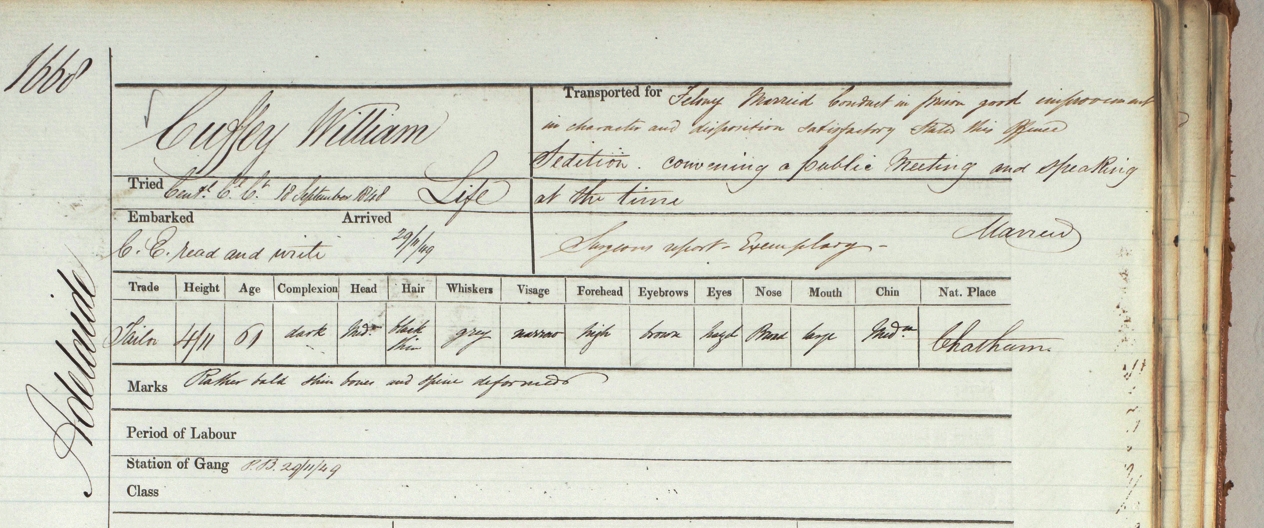 16668
Cuffey William
Transported for Felony Married Conduct in prison good improvement
in character and disposition satisfactory States this Offence
Sedition. convening a public Meeting and speaking
at the time
Tried Cent. C. Ct. 18 September 1848 Life
Embarked Arrived
29/11/49
C. E. read and write
Surgeons report - Exemplary - Married
Trade Height Age Complexion Head Hair Whiskers Visage Forehead Eyebrows Eyes Nose Mouth Chin Nat. Place
Tailor 4/11 61 dark Medm black thin grey narrow high brown hazel Broad large Medm Chatham.
Marks Rather bald shin bones and spine deformed
Period of Labour
Station of Gang P.B. 29/11/49
Class
Adelaide